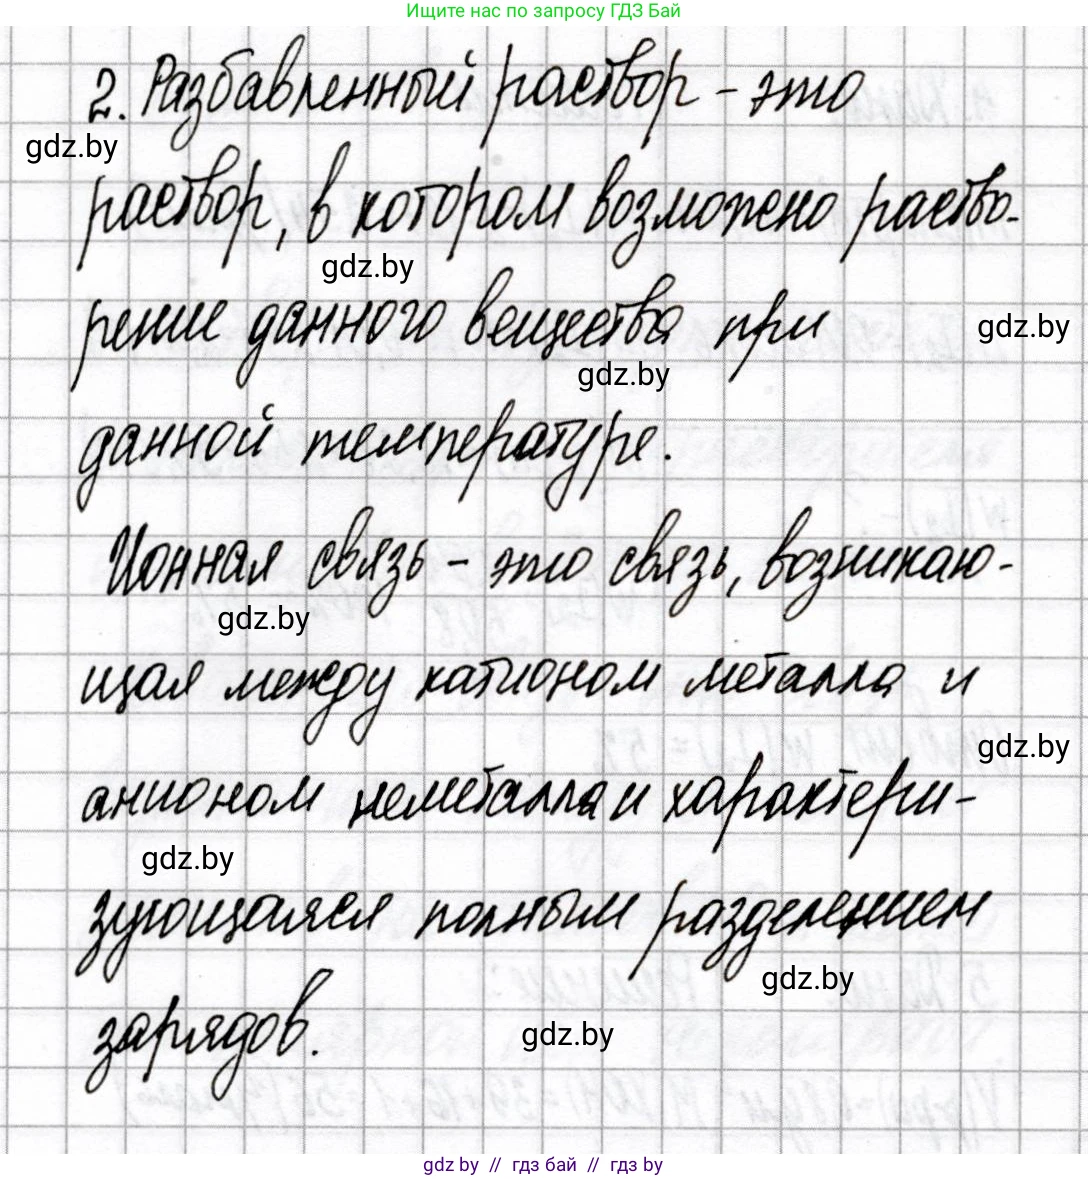 Ищите нас по запросу ГДЗ Бай
2. Разбавленный раствор - это
gdz.by
раствор, в котором возможено раство-
gdz.by
рение данного вещества при
gdz.by
gdz.by
данной температуре.
Ионная связь - это связь, возникаю-
gdz.by
щая между катионом металла и
gdz.by
анионом неметалла и характери-
gdz.by
зующаяся полным разделением
gdz.by
зарядов.
gdz.by
gdz by // гдз бай // гдз by